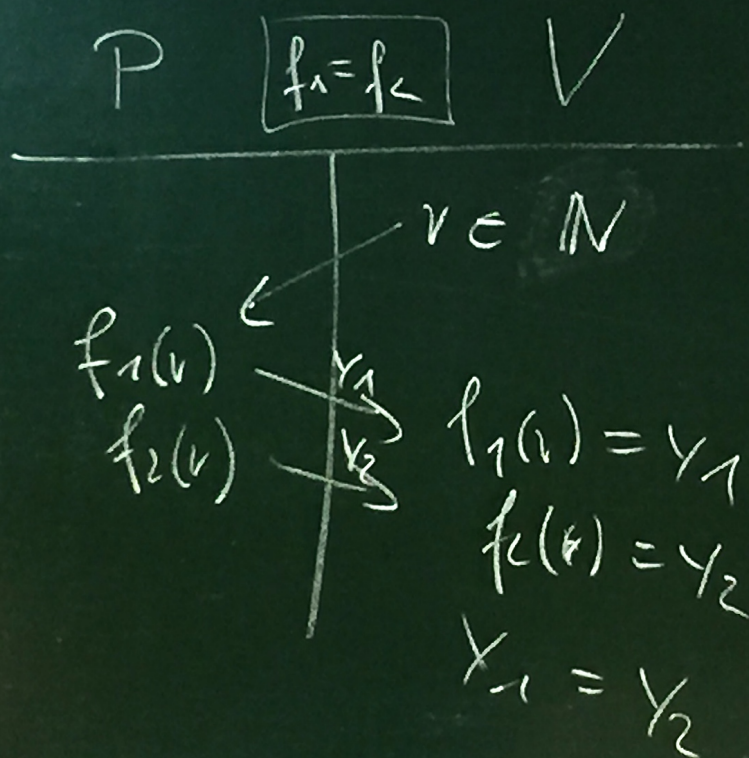 P f₁=f₂ V
r ∈ ℕ
f₁(r) y₁
f₂(r) y₂
f₁(r) = y₁
f₂(r) = y₂
y₁ = y₂